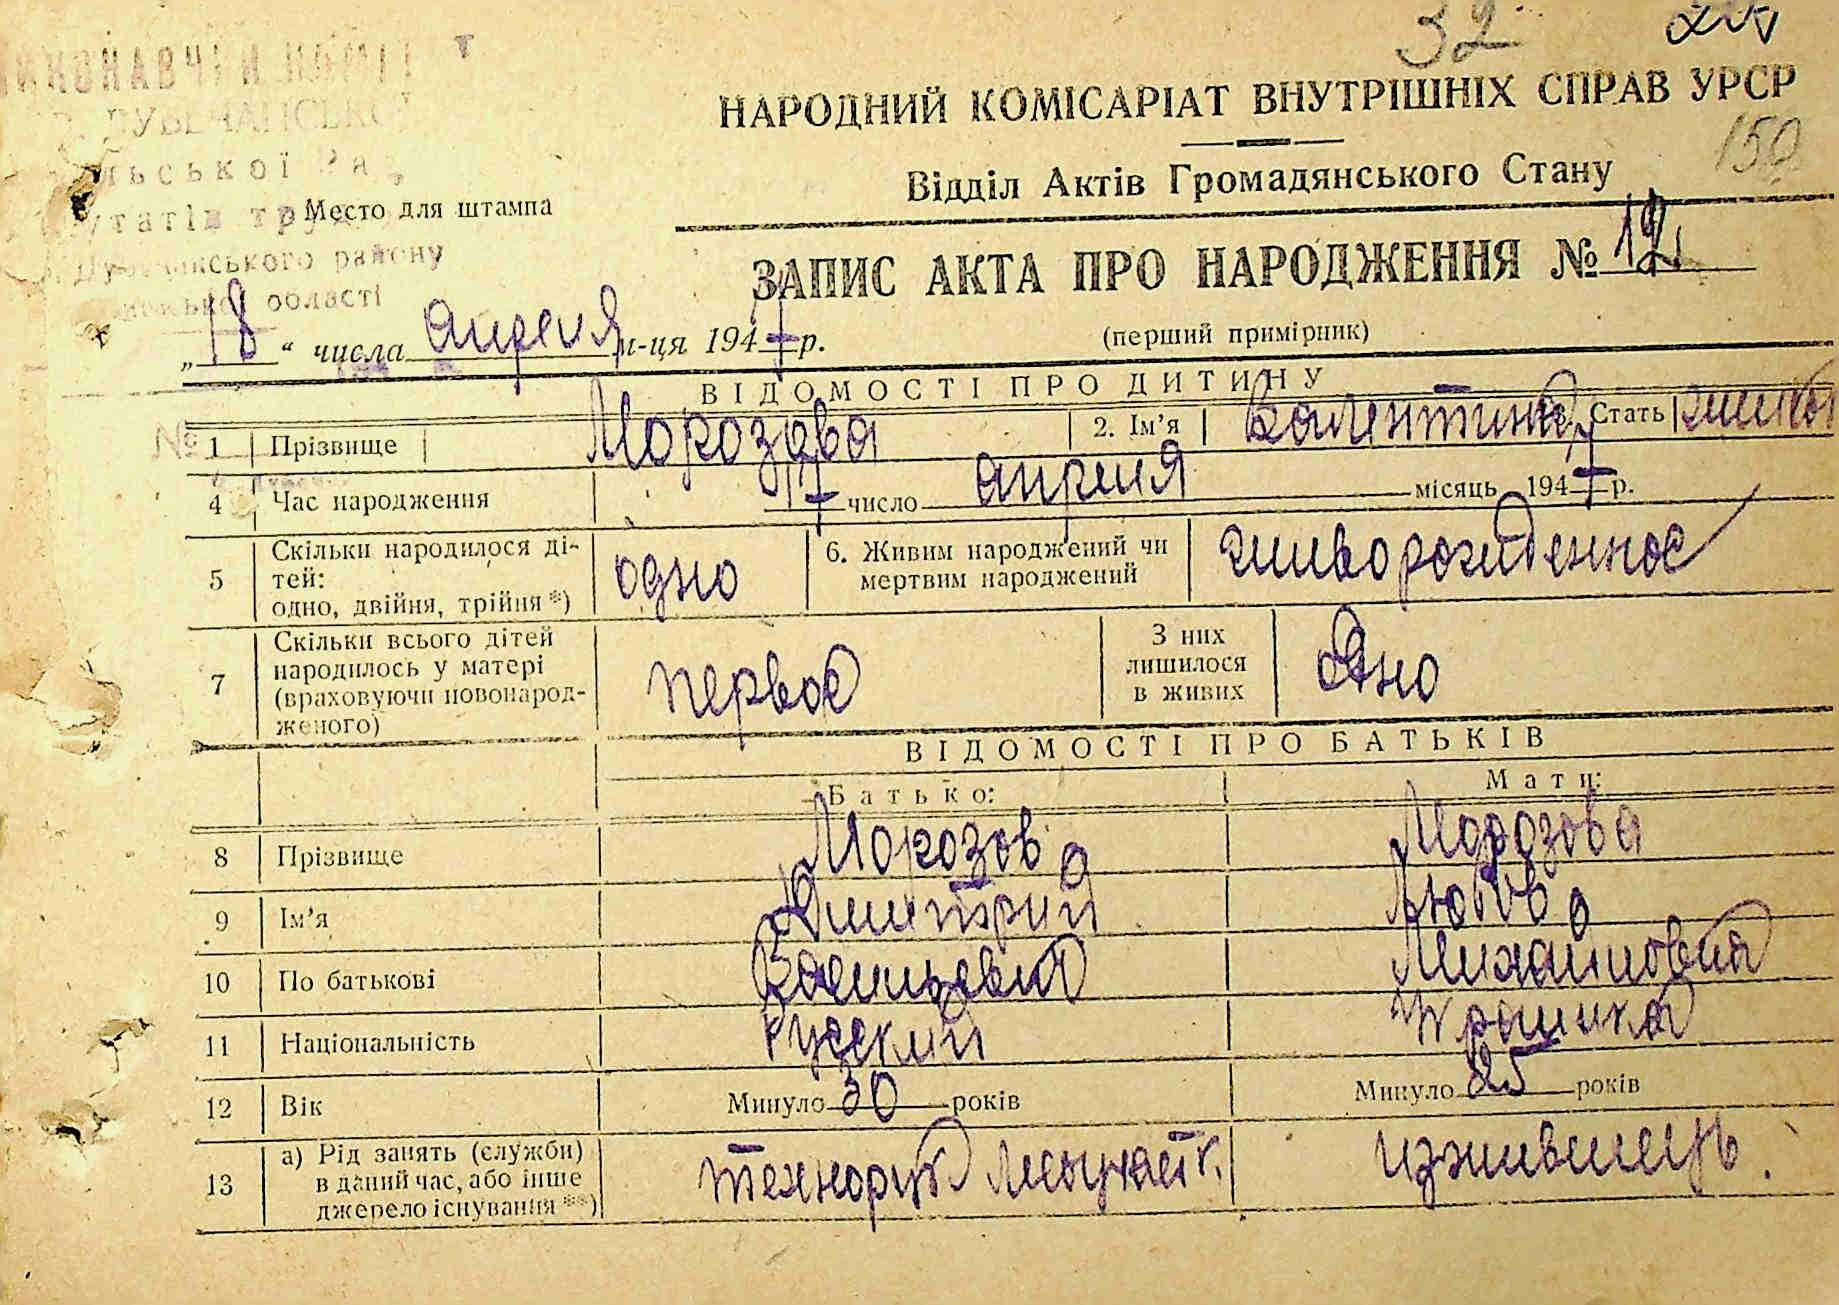 32
150
НАРОДНИЙ КОМІСАРІАТ ВНУТРІШНІХ СПРАВ УРСР
Відділ Актів Громадянського Стану
Место для штампа
району
області
ЗАПИС АКТА ПРО НАРОДЖЕННЯ № 12
(перший примірник)
„18“ числа апреля м-ця 1947 р.
ВІДОМОСТІ ПРО ДИТИНУ
1 Прізвище Морозава 2. Ім'я Валентина Стать
4 Час народження 17 число апреля місяць 1947 р.
5 Скільки народилося ді-
тей:
одно, двійня, трійня *) одно 6. Живим народжений чи
мертвим народжений живорожденное
7 Скільки всього дітей
народилось у матері
(враховуючи новонарод-
женого) первое З них
лишилося
в живих одно
ВІДОМОСТІ ПРО БАТЬКІВ
Батько: Мати:
8 Прізвище Морозов Морозова
9 Ім'я Дмитрий Любов
10 По батькові Васильевич Михайловна
11 Національність Русский
12 Вік Минуло 30 років Минуло 25 років
13 а) Рід занять (служби)
в даний час, або інше
джерело існування **) технорук иждивенець.